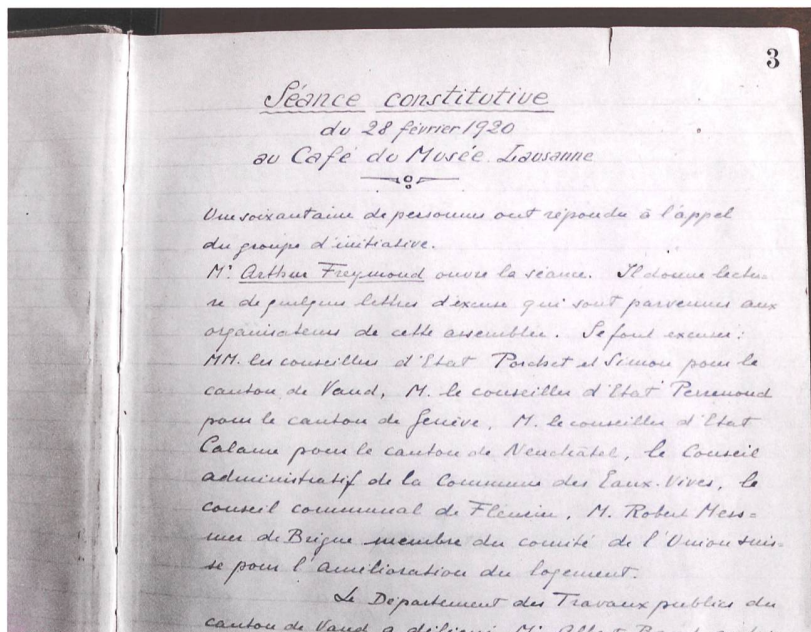 3
Séance constitutive
du 28 février 1920
au Café du Musée. Lausanne
Une soixantaine de personnes ont répondu à l'appel
du groupe d'initiative.
Mr Arthur Freymond ouvre la séance. Il donne lectu=
re de quelques lettres d'excuse qui sont parvenues aux
organisateurs de cette assemblée. Se font excuser:
MM. les conseillers d'Etat Porchet et Simon pour le
canton de Vaud, M. le conseiller d'Etat Perrenoud
pour le canton de Genève, M. le conseiller d'Etat
Calame pour le canton de Neuchâtel, le Conseil
administratif de la Commune des Eaux-Vives, le
conseil communal de Fleurier, M. Robert Mess=
mer de Brigue membre du comité de l'Union suis=
se pour l'amélioration du logement.
Le Département des Travaux publics du
canton de Vaud a délégué Mr Albert